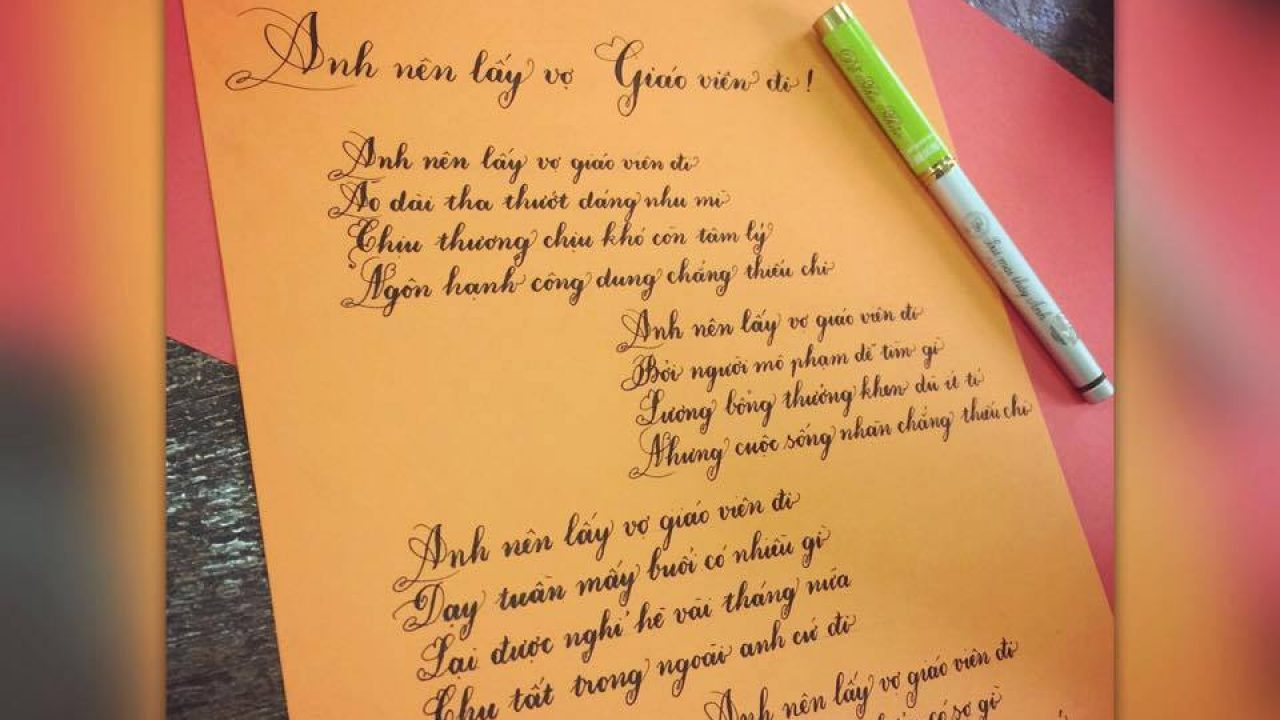 Anh nên lấy vợ Giáo viên đi!
Anh nên lấy vợ giáo viên đi
Áo dài tha thướt dáng nhu mì
Chịu thương chịu khó còn tâm lý
Ngôn hạnh công dung chẳng thiếu chi
Anh nên lấy vợ giáo viên đi
Bởi người mô phạm dễ tìm gì
Lương bổng thưởng khen dù ít tí
Nhưng cuộc sống nhàn chẳng thiếu chi
Anh nên lấy vợ giáo viên đi
Dạy tuần mấy buổi có nhiều gì
Lại được nghỉ hè vài tháng nữa
Chu tất trong ngoài anh cứ đi
Anh nên lấy vợ giáo viên đi
có sợ gì